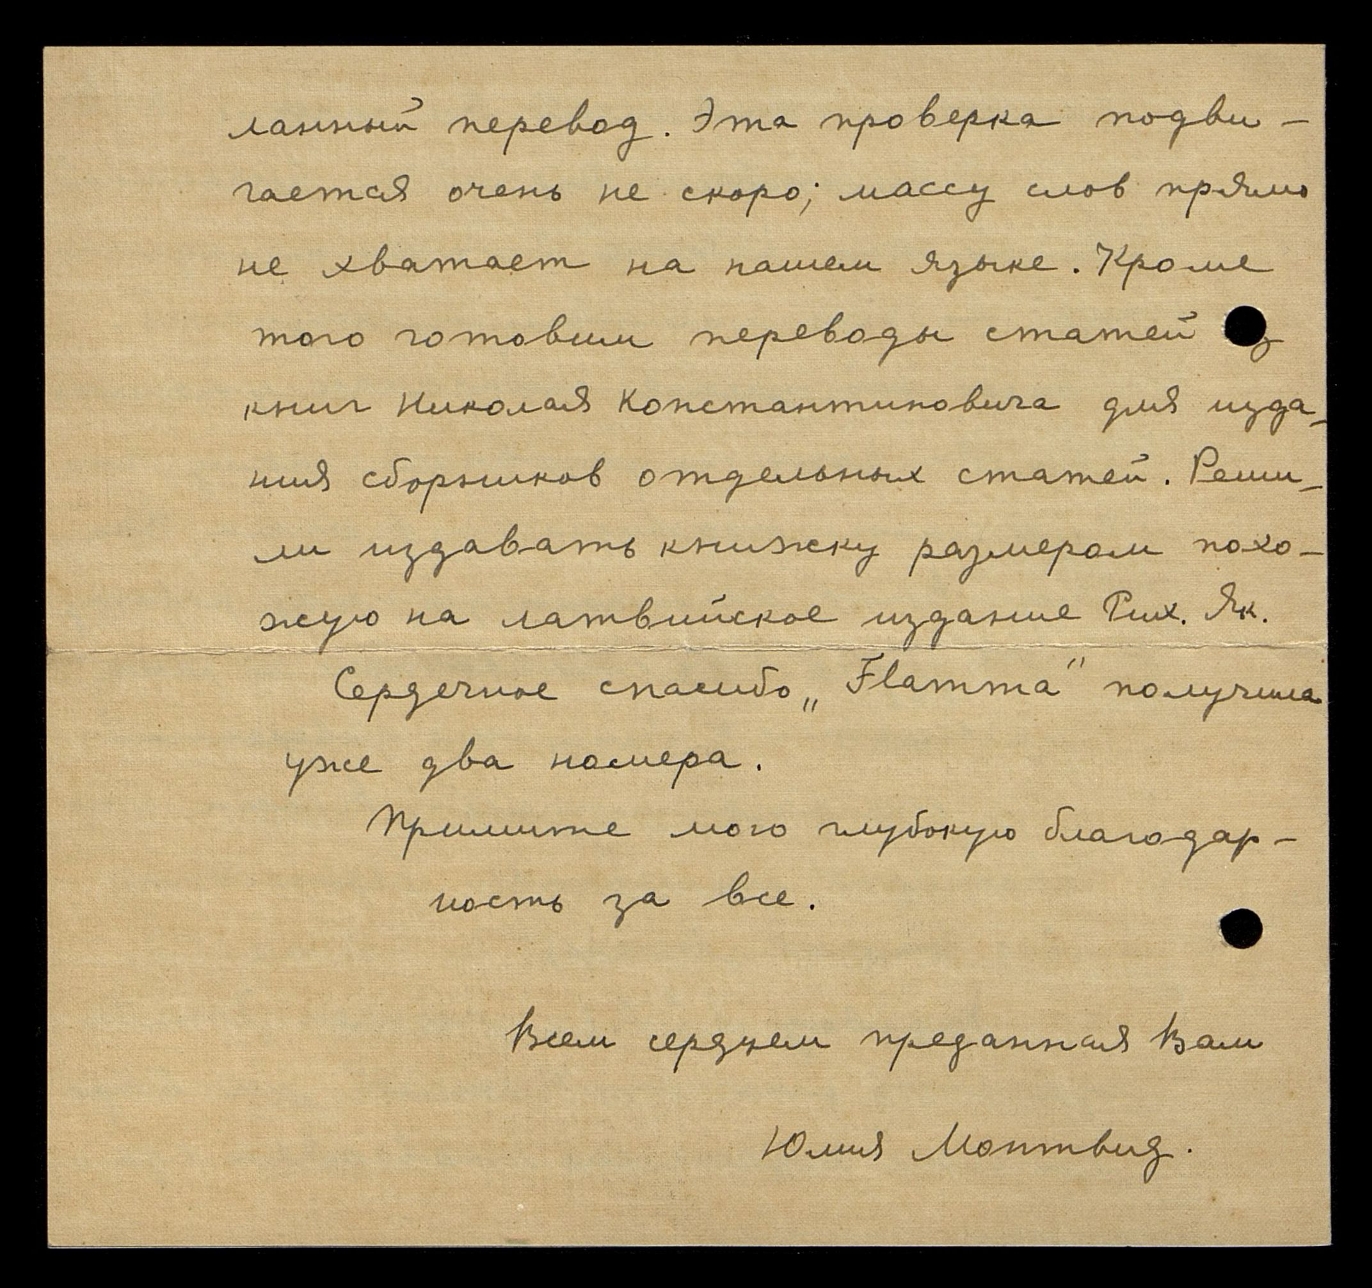 ланный перевод. Эта проверка подви-
гается очень не скоро; массу слов прямо
не хватает на нашем языке. Кроме
того готовим переводы статей
книг Николая Константиновича для изда-
ния сборников отдельных статей. Реши-
ли издавать книжку размером похо-
жую на латвийское издание Рих. Як.
Сердечное спасибо „Flamma" получила
уже два номера.
Примите мою глубокую благодар-
ность за все.
Всем сердцем преданная Вам
Юлия Монтвид.